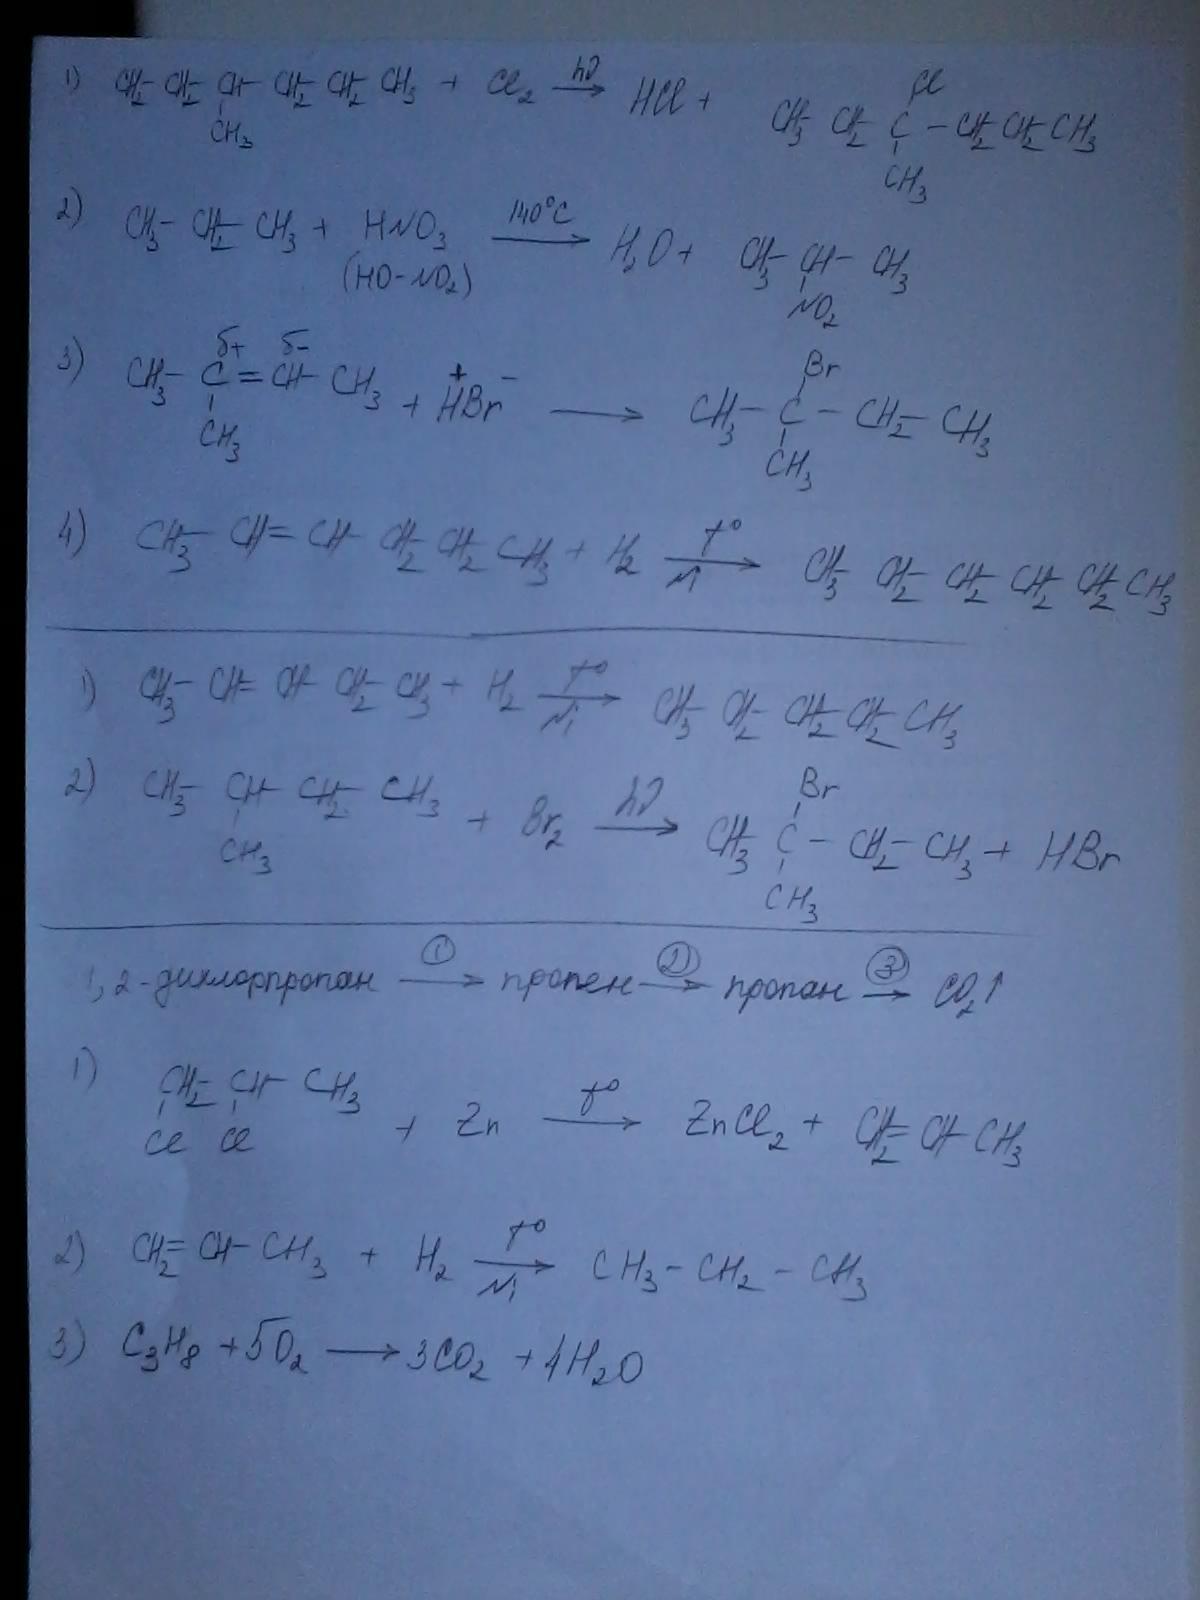 1) CH2- CH2- CH- CH2- CH2- CH3 + Cl2 hν→ HCl + CH3- CH2- C - CH2- CH2- CH3
Cl
CH3
CH3
2) CH3- CH2- CH3 + HNO3 140°C→ H2O + CH3- CH- CH3
(HO-NO2)
NO2
3) CH3- C = CH- CH3 + HBr → CH3- C - CH2- CH3
δ+ δ-
+ -
Br
CH3
CH3
4) CH3- CH= CH- CH2- CH2- CH3 + H2 t° Ni→ CH3- CH2- CH2- CH2- CH2- CH3
1) CH3- CH= CH- CH2- CH3 + H2 t° Ni→ CH3- CH2- CH2- CH2- CH3
2) CH3- CH- CH2- CH3 + Br2 hν→ CH3- C - CH2- CH3 + HBr
Br
CH3
CH3
1,2-дихлорпропан ①→ пропен ②→ пропан ③→ CO2↑
1) CH2- CH- CH3 + Zn t°→ ZnCl2 + CH2= CH- CH3
Cl Cl
2) CH2= CH- CH3 + H2 t° Ni→ CH3 - CH2 - CH3
3) C3H8 + 5O2 → 3CO2 + 4H2O